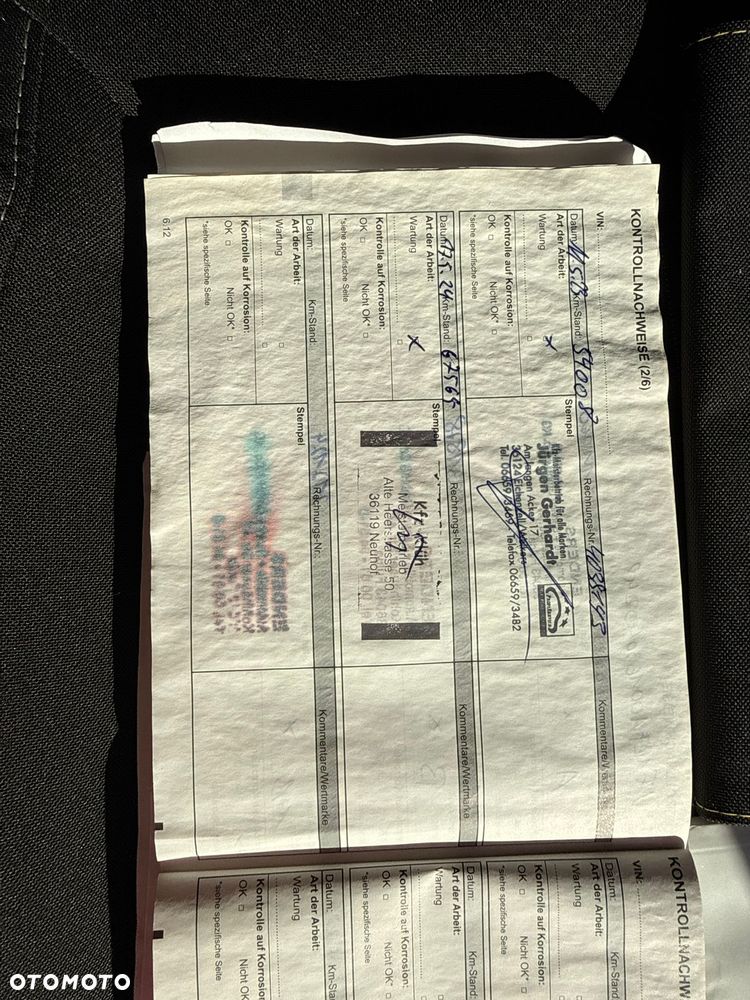 KONTROLLNACHWEISE (2/6)
VIN:
Datum: Km-Stand: 54008
Rechnungs-Nr.:
Kommentare/
Art der Arbeit:
Wartung x
Kontrolle auf Korrosion:
OK □ Nicht OK* □
*siehe spezifische Seite
Stempel
Kfz-Meisterbetrieb für alle Marken
Jürgen Gerhardt
Am langen Acker 17
36124 Eichenzell
Tel. 06659/3469 Telefax 06659/3482
Datum: 17.5.24 Km-Stand: 67564
Rechnungs-Nr.:
Kommentare/Wertmarke
Art der Arbeit:
Wartung x
Kontrolle auf Korrosion:
OK □ Nicht OK* □
*siehe spezifische Seite
Stempel
Kfz Klüh
Alte Heerstrasse 50
36119 Neuhof
Datum: Km-Stand:
Rechnungs-Nr.:
Kommentare/Wertmarke
Art der Arbeit:
Wartung □
Kontrolle auf Korrosion:
OK □ Nicht OK* □
*siehe spezifische Seite
Stempel
6.12
KONTROLLNACHW
VIN:
Datum: Km-Stand
Art der Arbeit:
Wartung
Kontrolle auf Korrosion:
OK □ Nicht OK
*siehe spezifische Seite
Datum: Km-Stand
Art der Arbeit:
Wartung
Kontrolle auf Korrosion:
OK □ Nicht OK
*siehe spezifische Seite
Datum: Km-Stand
Art der Arbeit:
Wartung
Kontrolle auf Korrosion:
OK □ Nicht OK
*siehe spezifische Seite
OTOMOTO